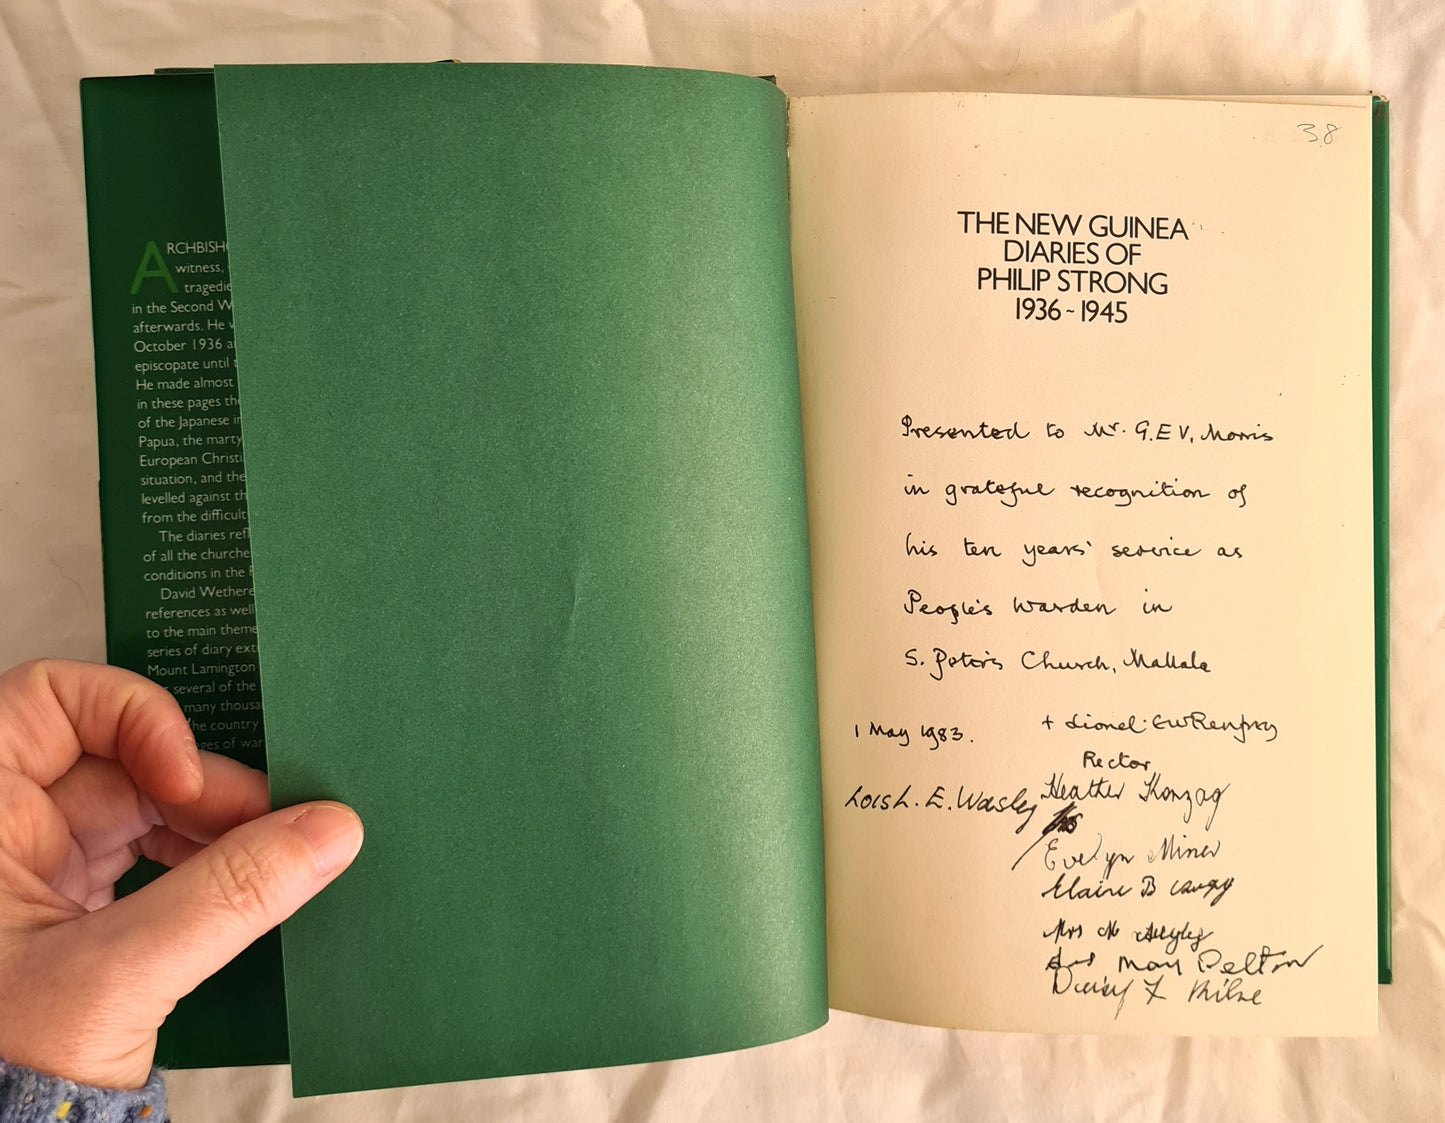 ARCHBISHO
witness,
tragedie
in the Second W
afterwards. He w
October 1936 a
episcopate until
He made almost
in these pages th
of the Japanese in
Papua, the marty
European Christi
situation, and the
levelled against th
from the difficult
The diaries refl
of all the churche
conditions in the
David Wethere
references as well
to the main theme
series of diary ext
Mount Lamington
several of the
many thousa
the country
ges of war
38
THE NEW GUINEA
DIARIES OF
PHILIP STRONG
1936~1945
Presented to Mr. G.E V. Morris
in grateful recognition of
his ten years' service as
People's Warden in
S. Peter's Church, Mallala
1 May 1983.
+ Lionel. E W Renfrey
Rector
Lois L. E. Wasley
Heather Konzag
Evelyn Miner
Elaine B
Mrs M
May Pelton